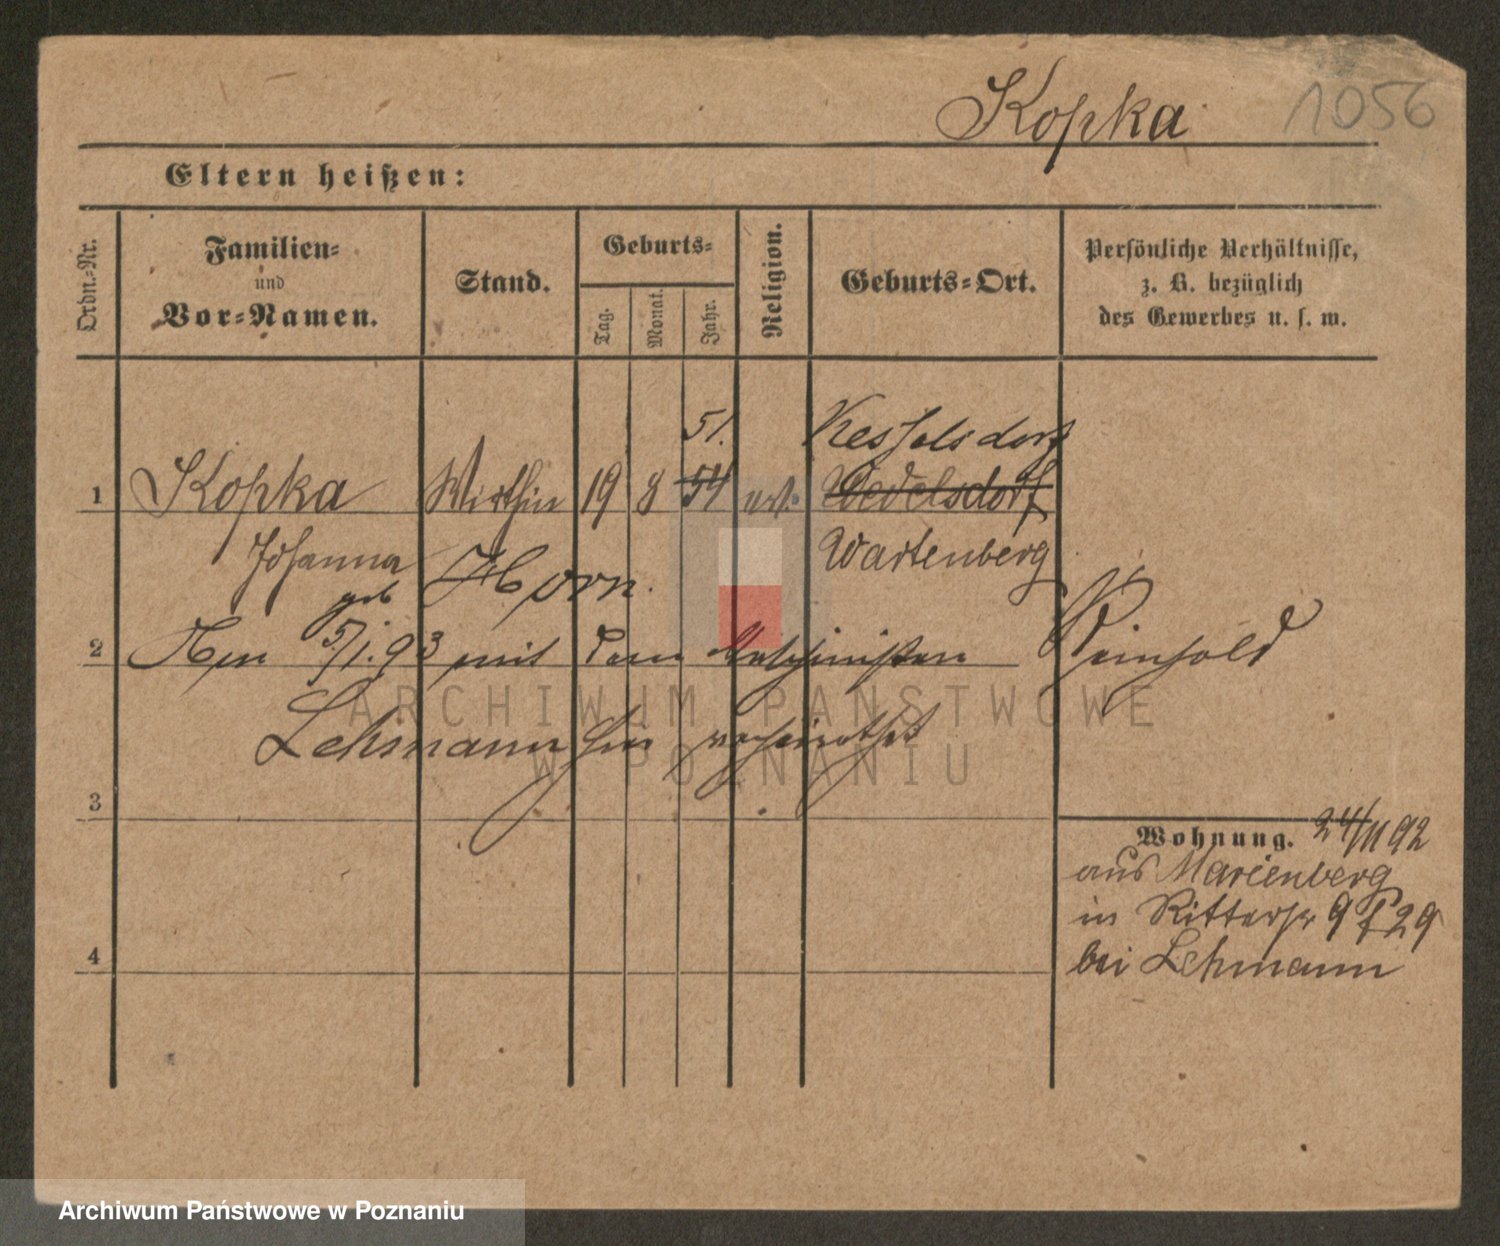 Kopka 1056
Eltern heißen:
Ordn.-Nr. Familien- und Vor-Namen. Stand. Geburts- Tag. Monat. Jahr. Religion. Geburts-Ort. Persönliche Verhältnisse, z. B. bezüglich des Gewerbes u. s. w.
51. Kesselsdorf
1 Kopka Wirthin 19 8 54 ev. Wedelsdorf
Johanna Wartenberg
geb Horn.
2 Am 5/1.93 mit dem Maschinisten Reinhold
Lehmann hier verheirathet
3
Wohnung. 24/11 92
aus Marienberg
in Ritterstr 9 29
4 bei Lehmann
ARCHIWUM PAŃSTWOWE
W POZNANIU
Archiwum Państwowe w Poznaniu